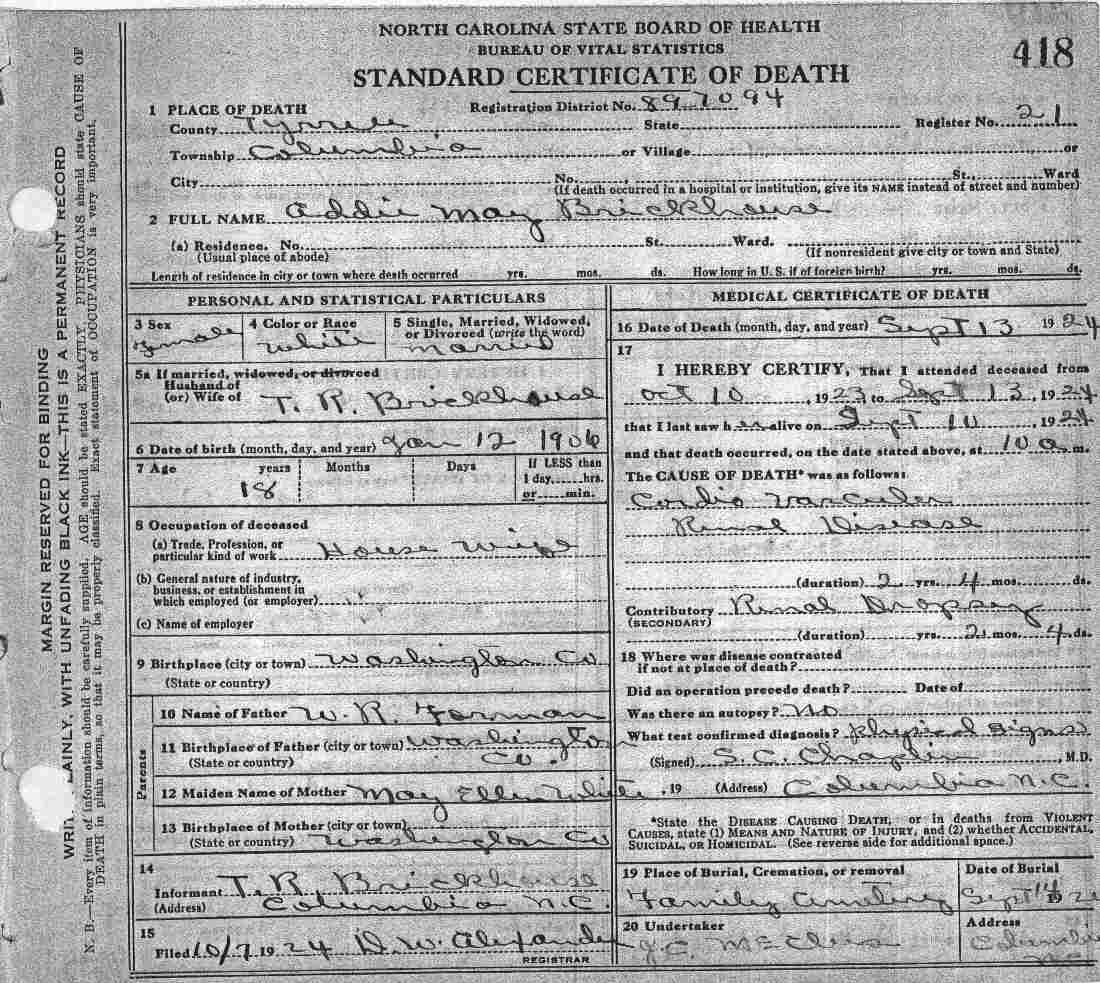 NORTH CAROLINA STATE BOARD OF HEALTH
BUREAU OF VITAL STATISTICS
STANDARD CERTIFICATE OF DEATH
418
1 PLACE OF DEATH Registration District No. 897094
County Tyrrell State Register No. 21
Township Columbia or Village or
City No. , St., Ward
(If death occurred in a hospital or institution, give its NAME instead of street and number)
2 FULL NAME Addie May Brickhouse
(a) Residence. No. St. Ward.
(Usual place of abode) (If nonresident give city or town and State)
Length of residence in city or town where death occurred yrs. mos. ds. How long in U. S. if of foreign birth? yrs. mos. ds.
PERSONAL AND STATISTICAL PARTICULARS
3 Sex 4 Color or Race 5 Single, Married, Widowed,
or Divorced (write the word)
Female White Married
5a If married, widowed, or divorced
Husband of
(or) Wife of T. R. Brickhouse
6 Date of birth (month, day, and year) Jan 12 1906
7 Age years Months Days If LESS than
1 day, hrs.
18 or min.
8 Occupation of deceased
(a) Trade, Profession, or
particular kind of work House Wife
(b) General nature of industry,
business, or establishment in
which employed (or employer)
(c) Name of employer
9 Birthplace (city or town) Washington Co
(State or country)
Parents
10 Name of Father W. R. Forman
11 Birthplace of Father (city or town) Washington
(State or country) Co.
12 Maiden Name of Mother May Ellen White
13 Birthplace of Mother (city or town)
(State or country) Washington Co
14
Informant T. R. Brickhouse
(Address) Columbia N.C.
15
Filed 10/7 1924 D. W. Alexander
REGISTRAR
MEDICAL CERTIFICATE OF DEATH
16 Date of Death (month, day, and year) Sept 13 1924
17
I HEREBY CERTIFY, That I attended deceased from
Oct 10 , 1923 to Sept 13, 1924
that I last saw h er alive on Sept 10 , 1924
and that death occurred, on the date stated above, at 10 a m.
The CAUSE OF DEATH* was as follows:
Cardio Vascular
Renal Disease
(duration) 2 yrs. 4 mos. ds.
Contributory Renal Dropsy
(SECONDARY)
(duration) yrs. 2 mos. 4 ds.
18 Where was disease contracted
if not at place of death?
Did an operation precede death? Date of
Was there an autopsy? No
What test confirmed diagnosis? Physical signs
(Signed) S. C. Chaplin , M.D.
, 19 (Address) Columbia N.C.
*State the DISEASE CAUSING DEATH, or in deaths from VIOLENT
CAUSES, state (1) MEANS AND NATURE OF INJURY, and (2) whether ACCIDENTAL,
SUICIDAL, OR HOMICIDAL. (See reverse side for additional space.)
19 Place of Burial, Cremation, or removal Date of Burial
Family Cemetery Sept 14 19
20 Undertaker Address
J. C. Columbia
N.C.
MARGIN RESERVED FOR BINDING
PLAINLY, WITH UNFADING BLACK INK—THIS IS A PERMANENT RECORD
N. B.—Every item of information should be carefully supplied. AGE should be stated EXACTLY. PHYSICIANS should state CAUSE OF
DEATH in plain terms, so that it may be properly classified. Exact statement of OCCUPATION is very important.